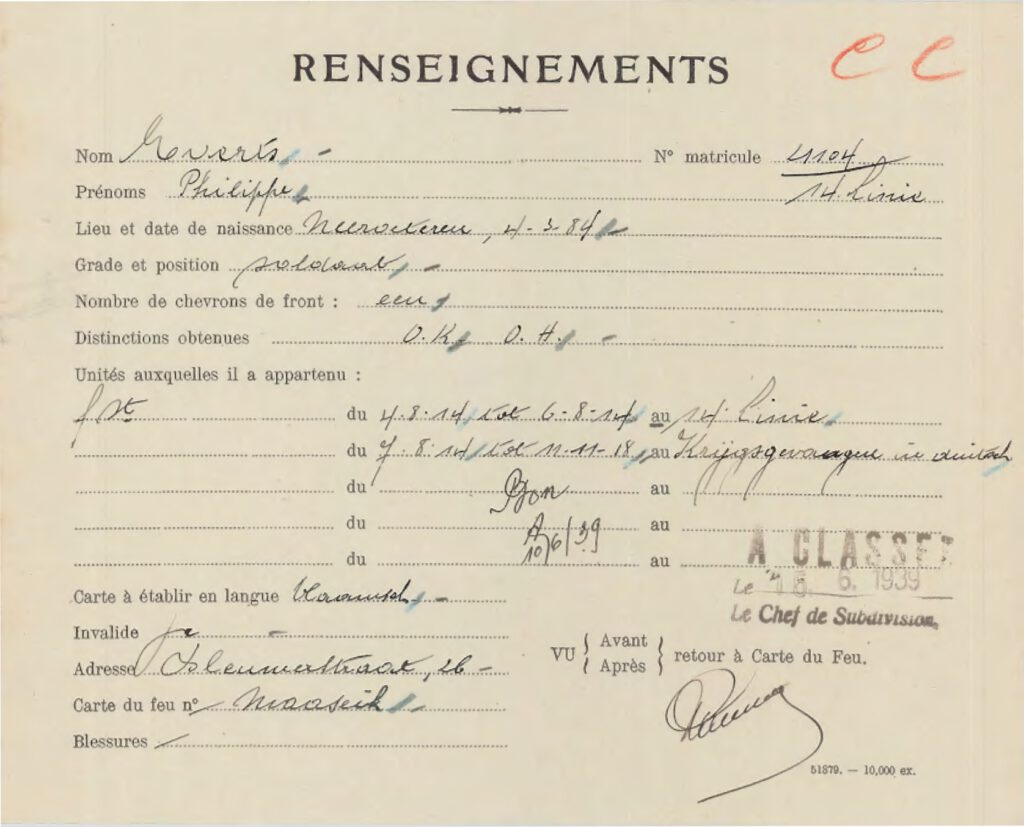 RENSEIGNEMENTS
C C
Nom Everts, -
N° matricule 41104
14 Linie
Prénoms Philippe,
Lieu et date de naissance Neeroeteren, 4-3-84, -
Grade et position soldaat, -
Nombre de chevrons de front : een,
Distinctions obtenues O.K, O.H. -
Unités auxquelles il a appartenu :
du 4.8.14, tot 6-8-14, au 14 Linie,
du 7.8.14, tot 11-11-18, au Krijgsgevangen in duitsch
du au
du 10/6/39 au
du au
A CLASSER
Le 15. 6. 1939
Le Chef de Subdivision,
Carte à établir en langue Vlaamsch, -
Invalide -
Adresse 26 -
Carte du feu n° Maaseik, -
Blessures -
VU { Avant Après } retour à Carte du Feu.
51879. — 10,000 ex.